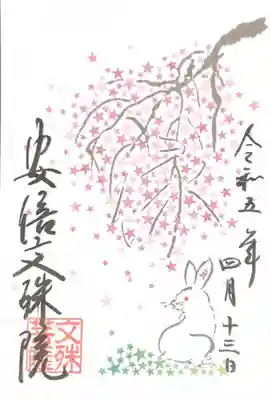 令和五年 四月十三日
安倍文殊院
文殊
菩薩